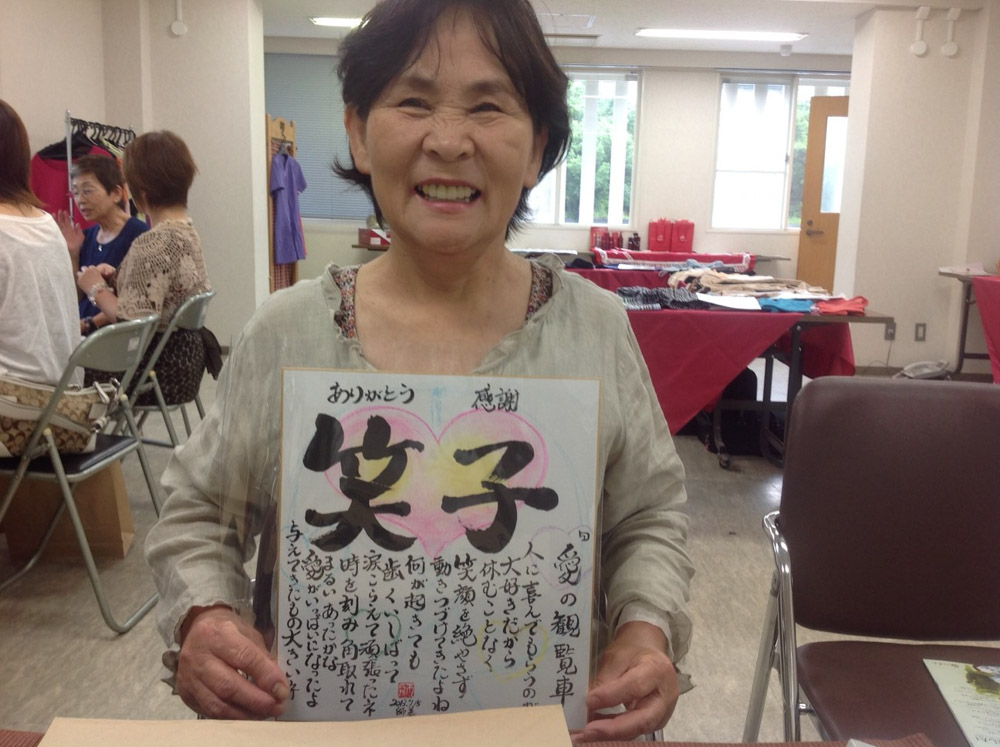 ありがとう
感謝
笑子
愛の観覧車
人に喜んでもらうのが
大好きだから
休むことなく
笑顔を絶やさず
動きつづけてきたよね
何が起きても
歯くいしばって
涙こらえて頑張ったネ
時を刻み角取れて
まるいあったかな
愛がいっぱいになったよ
与えてきたもの大きい